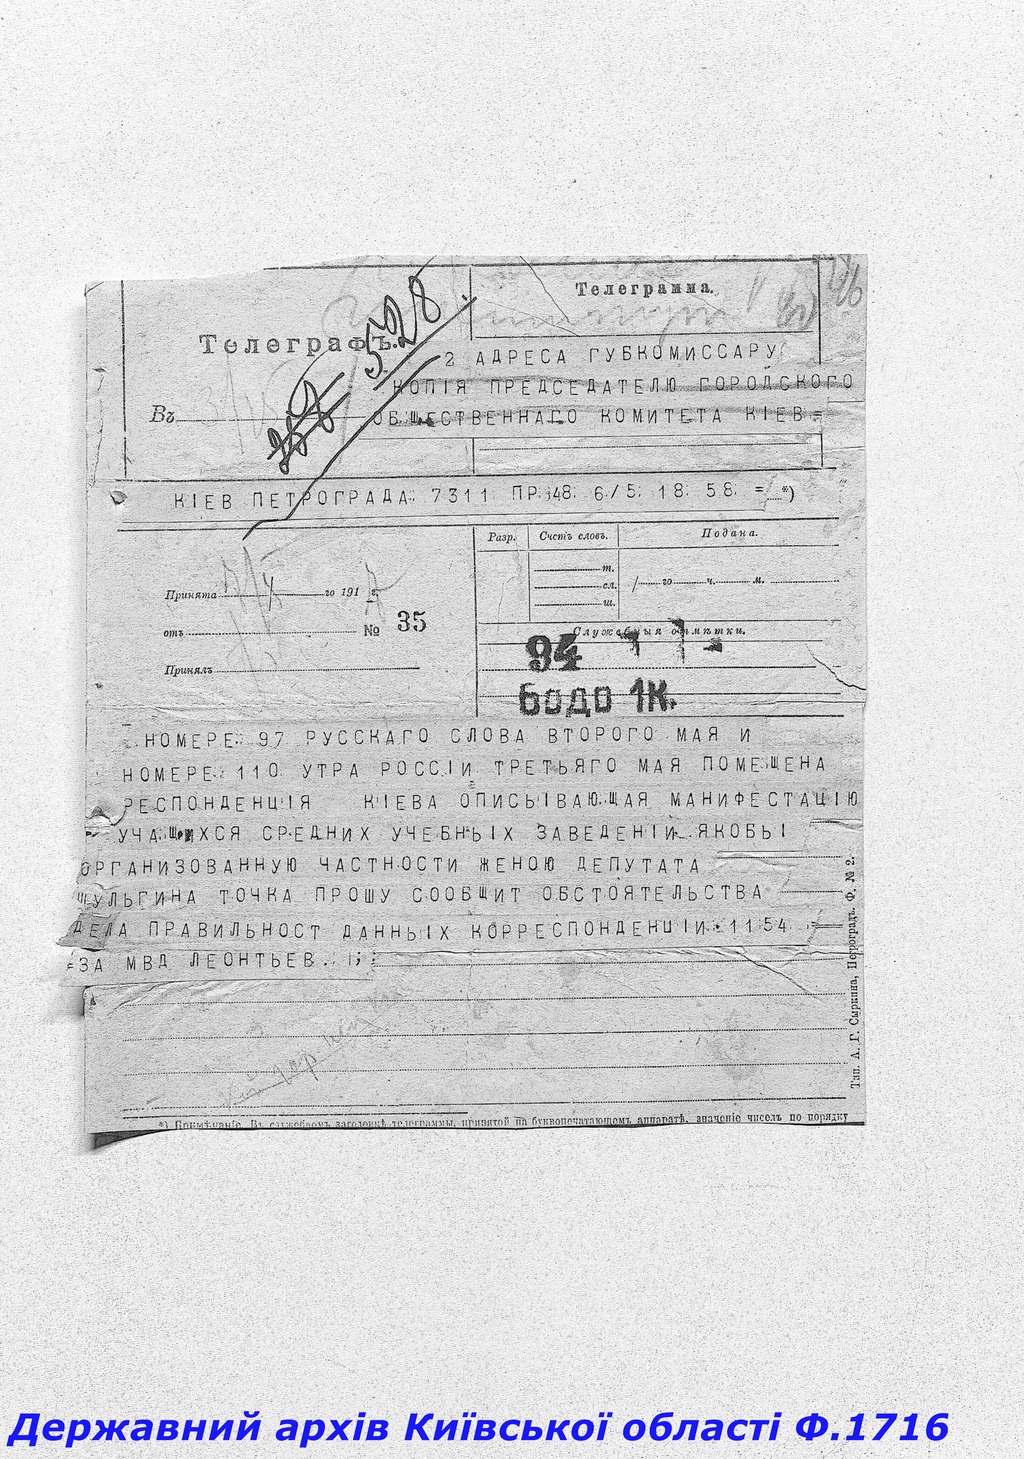 Телеграмма.
Телеграфъ.
528
2 АДРЕСА ГУБКОМИССАРУ
КОПІЯ ПРЕДСЕДАТЕЛЮ ГОРОДСКОГО
Въ
ОБЩЕСТВЕННАГО КОМИТЕТА КІЕВ =
КІЕВ ПЕТРОГРАДА 7311 ПР 48 6/5 18 58 = *)
Разр. Счетъ словъ. Подана.
т.
сл. го ч. м.
ш.
Принята го 191 г.
отъ № 35
Служебныя отмѣтки.
Принялъ
94
Бодо 1К.
НОМЕРЕ 97 РУССКАГО СЛОВА ВТОРОГО МАЯ И
НОМЕРЕ 110 УТРА РОССІИ ТРЕТЬЯГО МАЯ ПОМЕЩЕНА
РЕСПОНДЕНЦІЯ КІЕВА ОПИСЫВАЮЩАЯ МАНИФЕСТАЦІЮ
УЧАЩИХСЯ СРЕДНИХ УЧЕБНЫХ ЗАВЕДЕНІЙ ЯКОБЫ
ОРГАНИЗОВАННУЮ ЧАСТНОСТИ ЖЕНОЮ ДЕПУТАТА
ШУЛЬГИНА ТОЧКА ПРОШУ СООБЩИТ ОБСТОЯТЕЛЬСТВА
ДЕЛА ПРАВИЛЬНОСТ ДАННЫХ КОРРЕСПОНДЕНЦІИ 1154
=ЗА МВД ЛЕОНТЬЕВ
Тип. А. Г. Сыркина, Петроградъ. Ф. № 2.
*) Примѣчаніе. Въ служебномъ заголовкѣ телеграммы, принятой на буквопечатающемъ аппаратѣ, значеніе чиселъ по порядку
Державний архів Київської області Ф.1716